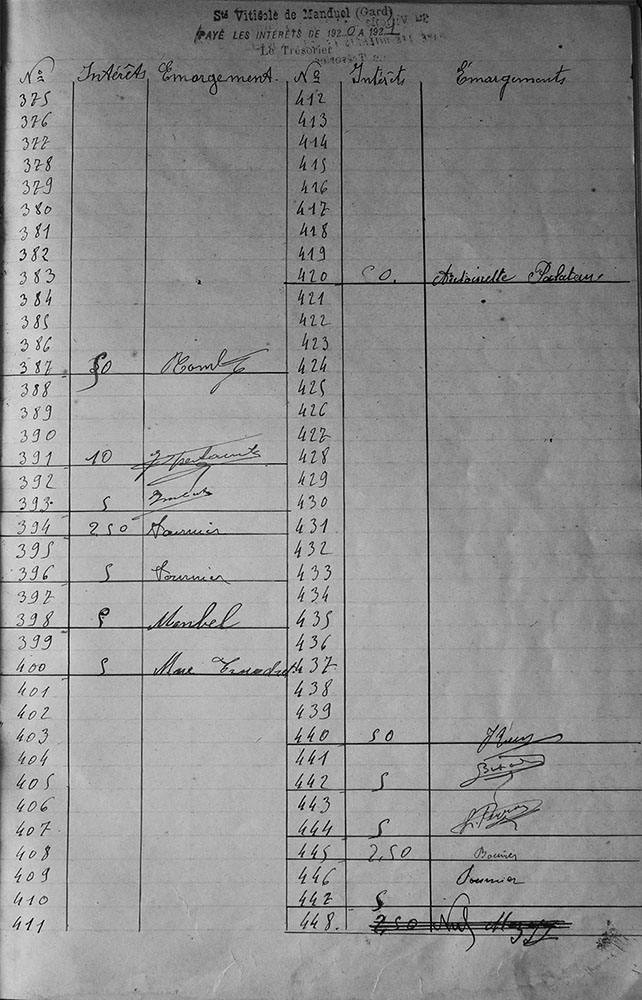 Sté Viticole de Manduel (Gard)
PAYÉ LES INTÉRÊTS DE 1920 A 1921
Le Trésorier
Nos Intérêts Emargement. No Intérêts Émargements
375 412
376 413
377 414
378 415
379 416
380 417
381 418
382 419
383 420 50. Antoinette
384 421
385 422
386 423
387 50 424
388 425
389 426
390 427
391 10 428
392 429
393 5 430
394 2,50 Fournier 431
395 432
396 5 Fournier 433
397 434
398 5 435
399 436
400 5 Mme 437
401 438
402 439
403 440 50
404 441
405 442 5
406 443
407 444 5
408 445 2,50
409 446 Fournier
410 447 5
411 448. 2,50